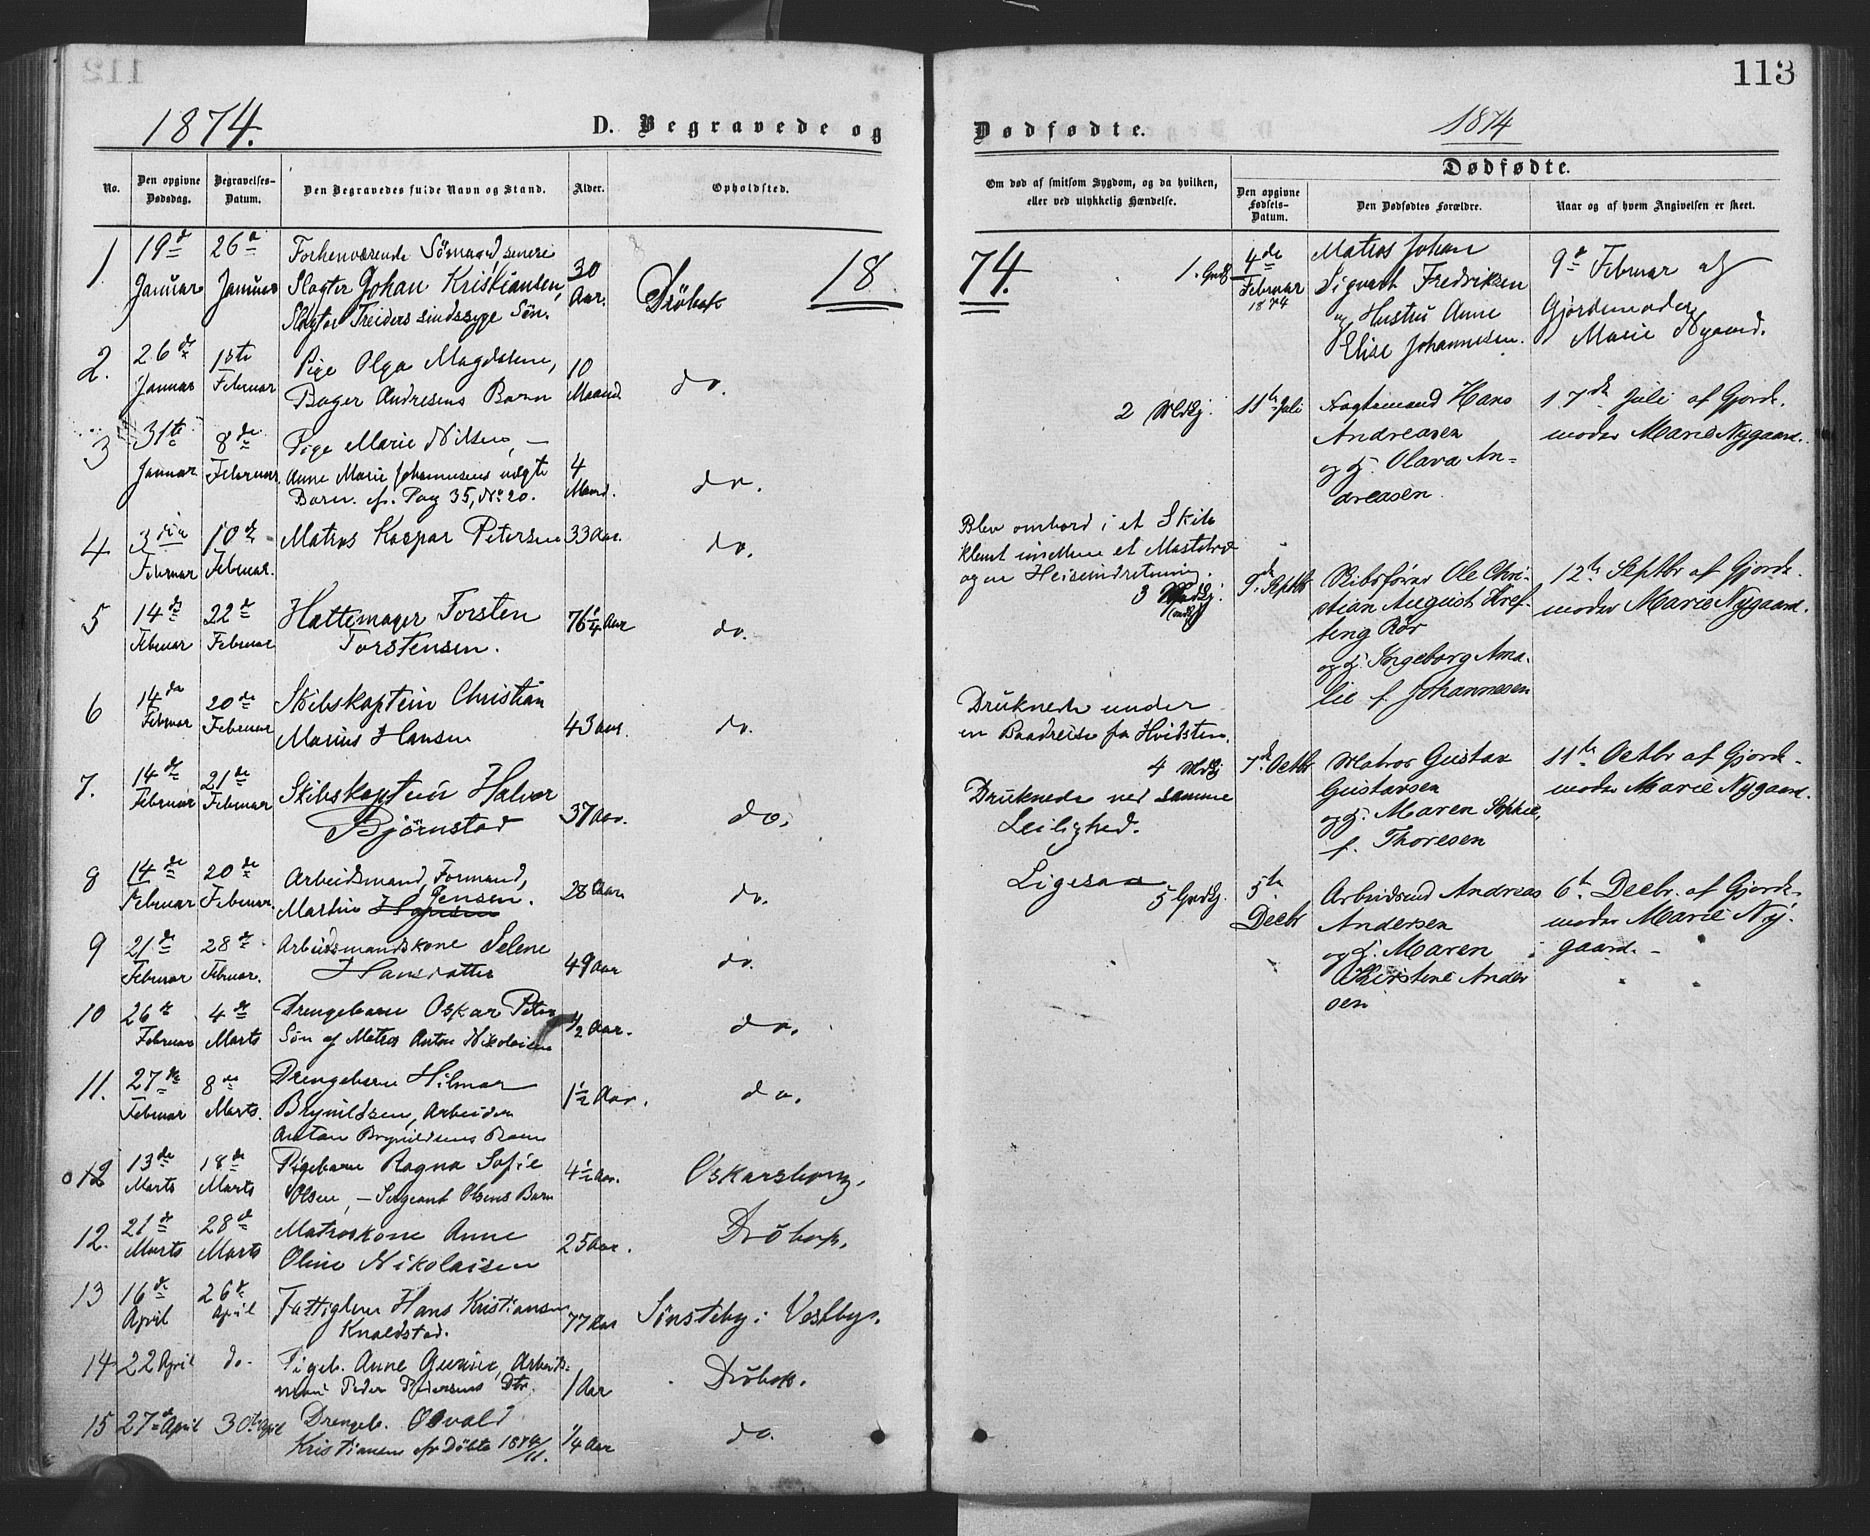 112
113
1874.
D. Begravede og
Dødfødte.
1874
No.
Den opgivne Dødsdag.
Begravelses-Datum.
Den Begravedes fulde Navn og Stand.
Alder.
Opholdsted.
Om død af smitsom Sygdom, og da hvilken,
eller ved ulykkelig Hændelse.
Dødfødte.
Den opgivne Fødsels-Datum.
Den Dødfødtes Forældre.
Naar og af hvem Angivelsen er skeet.
1874.
1 19de Januar 26de Januar
Forhenværende Sømand senere
Slagter Johan Kristiansen,
Slagter Treiders sindssyge Søn.
30 Aar. Drøbak
2. 26de Januar 1ste Februar
Pige Olga Magdalene,
Bager Andresens Barn
10 Maaned do.
3 31te Januar 8de Februar
Pige Marie Nilsen, –
Anne Marie Johannesens uægte
Barn. cfr. Pag 35, No 20.
4 Maaned. do.
4 3die Februar 10de Februar.
Matros Kaspar Petersen 33 Aar. do.
5 14de Februar 22de Februar
Hattemager Torsten
Torstensen.
76 1/4 Aar do.
6 14de Februar 20de Februar
Skibskaptein Christian
Marius Hansen
43 Aar. do.
7. 14de Februar 21de Februar
Skibskaptein Halvor
Bjørnstad
37 Aar. do.
8 14de Februar 20de Februar.
Arbeidsmand, Formand,
Martin Hansen Jensen.
28 Aar do.
9 21de Februar 28de Februar.
Arbeidsmandskone Selene
Hansdatter
49 Aar do.
10 26de Februar 4de Marts
Drengebarn Oskar Peter
Søn af Matros Anton Nikolaisen
1/2 Aar. do.
11. 27de Februar 8de Marts.
Drengebarn Hilmar
Brynildsen, Arbeider
Anton Brynildsens Barn
1 1/2 Aar. do.
12 13de Marts 18de Marts
Pigebarn Ragna Sofie
Olsen, – Sergeant Olsens Barn
4 1/2 Aar. Oskarsborg.
12. 21de Marts 28de Marts
Matroskone Anne
Oline Nikolaisen
25 Aar. Drøbak.
13 16de April 26de April
Fattiglem Hans Kristiansen
Knaldstad.
77 Aar Sønsteby i Vestby.
14 22 April do.
Pigeb. Anne Gunine, Arbeids-
mand Peder Pedersens Dtr.
1 Aar Drøbak.
15 27de April 30te April
Drengeb. Osvald
Kristiansen cfr Døbte 1874/11.
1/4 Aar do.
1. Gudkj. 4de Februar 1874
Matros Johan
Sigvart Fredriksen
og Hustru Anne
Elise Johannesen.
9de Februar af
Gjordemoder
Marie Nygaard.
2 Mdkj. 11te Juli
Nagtemand Hans
Andreasen
og H. Olava An=
dreasen.
17de Juli af Gjorde-
moder Marie Nygaard.
Blev ombord i et Skib
klemt imellem et Mastetræ
og en Heiseindretning.
3 9de Septbr
Skibsfører Ole Chri-
stian August Kref-
ting Rør
og H. Ingeborg Ama-
lie f. Johannesen
12te Septbr af Gjorde-
moder Marie Nygaard.
Druknede under
en Baadreise fra Hvidsten.
4 Mdkj 7de Octbr
Matros Gustav
Gustavsen
og H. Maren Sophie,
f. Thoresen
11te Octbr af Gjorde-
moder Marie Nygaard.
Druknede ved samme
Leilighed.
Ligesaa
5 Gudkj. 5te Decbr
Arbeidsmd Andreas
Andersen
og H. Maren
Kirstine Ander
sen
6te Decbr. af Gjorde-
moder Marie Ny-
gaard. –